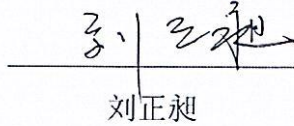 刘正昶
刘正昶